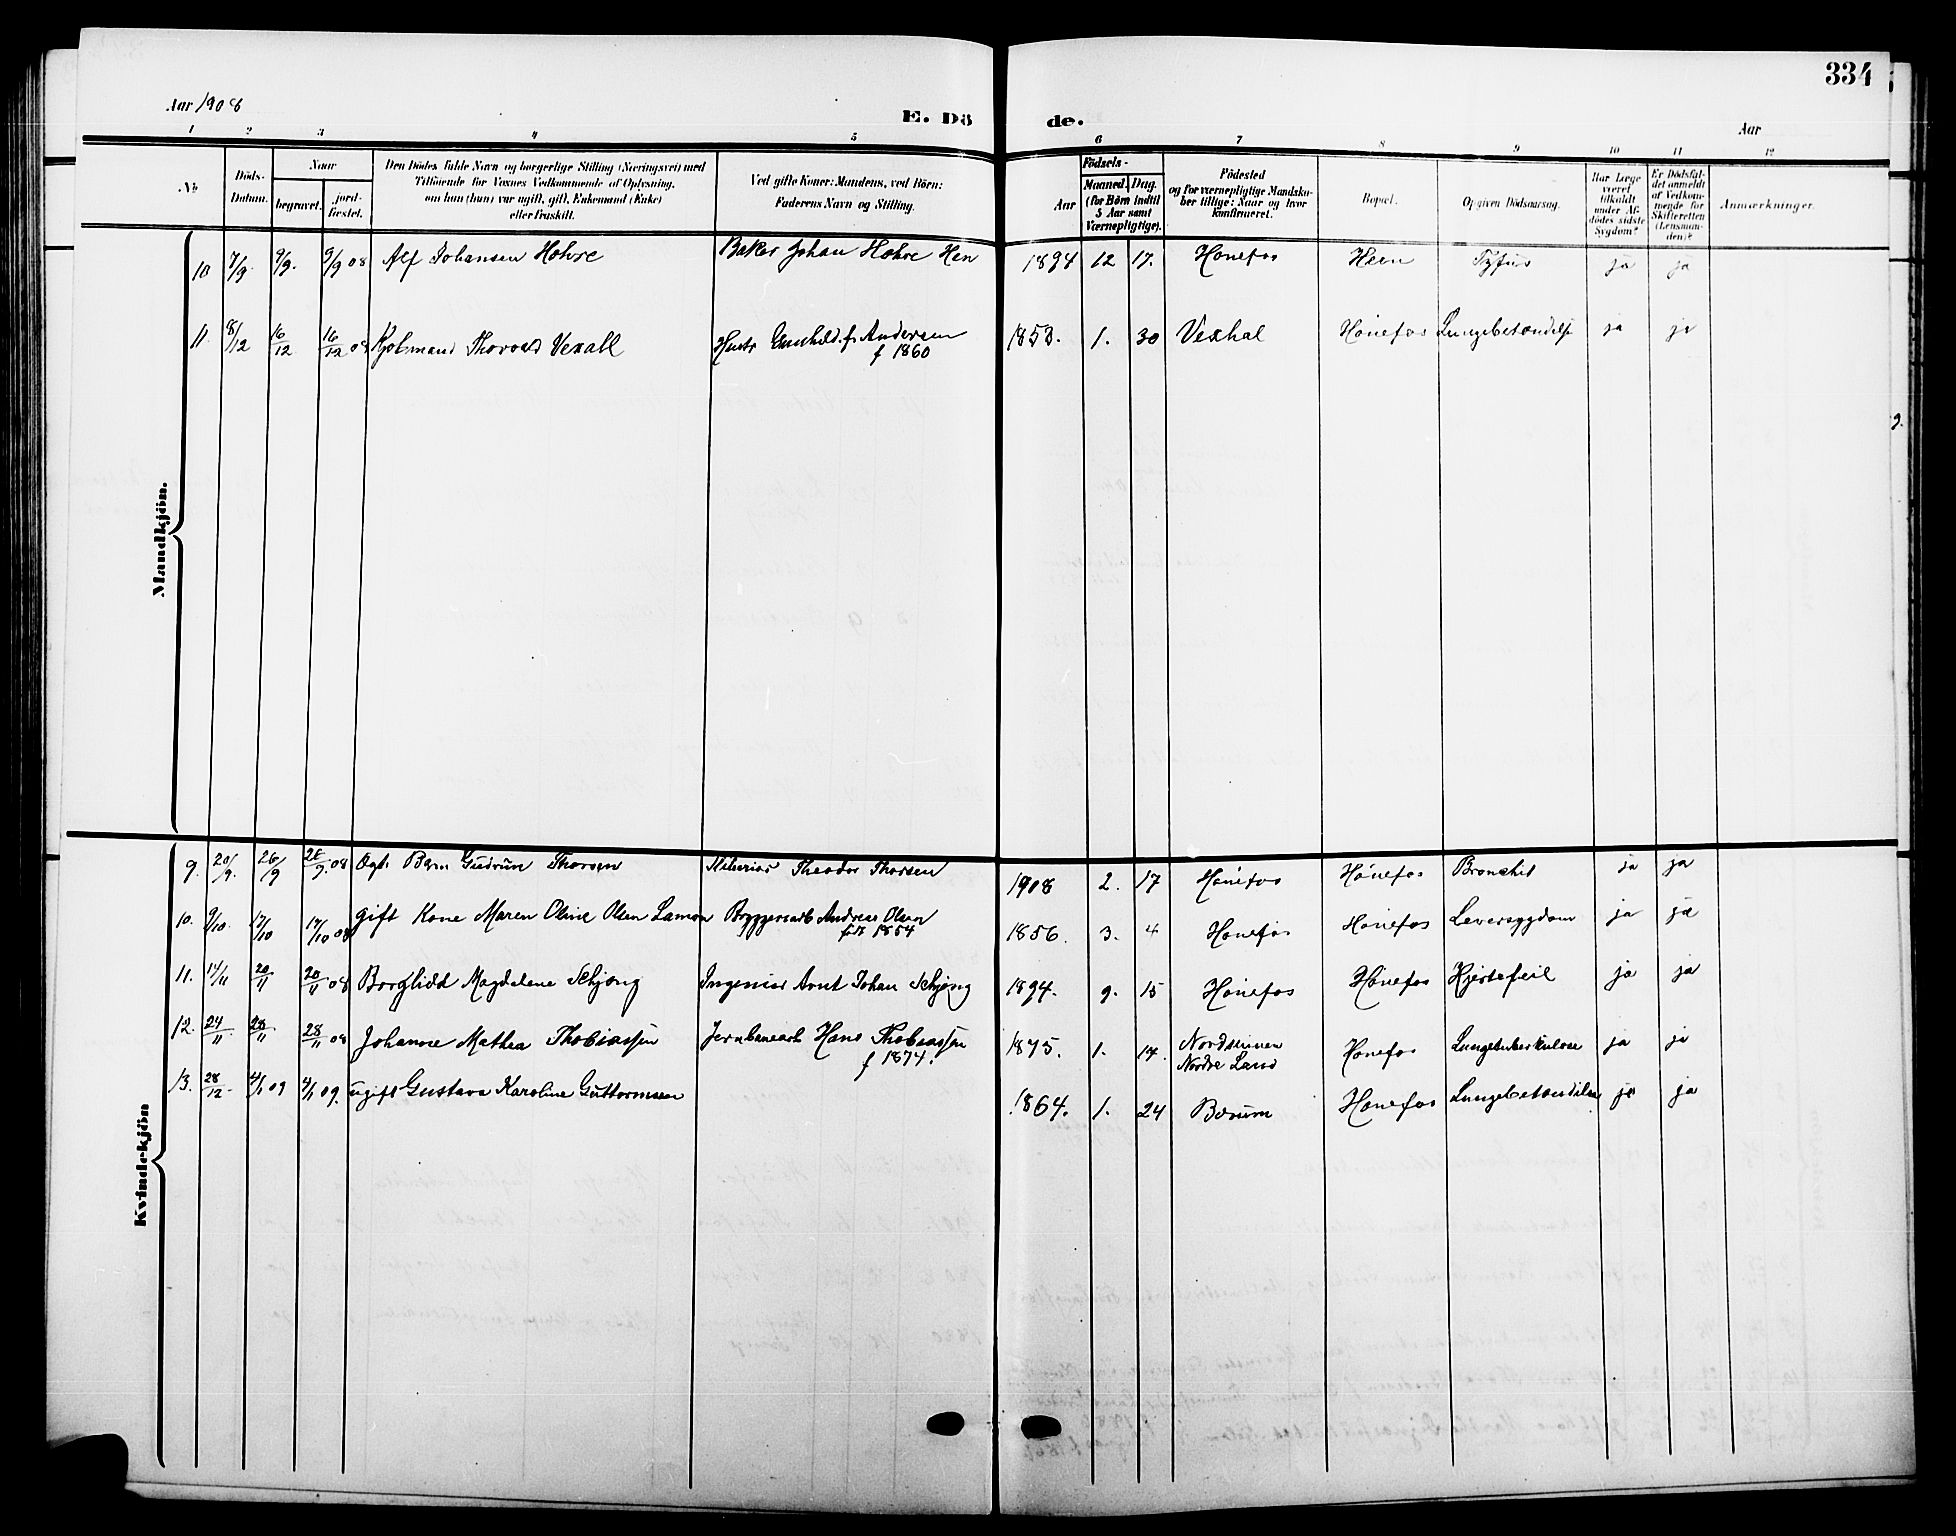 334
Aar 1908
E. Dö de.
Aar
1 2 3 4 5 6 7 8 9 10 11 12
No
Döds-
Datum.
Naar
begravet.
jord-
fæstet.
Den Dödes fulde Navn og borgerlige Stilling (Næringsvei) med
Tilföiende for Voxnes Vedkommende af Oplysning,
om han (hun) var ugift, gift, Enkemand (Enke)
eller fraskilt.
Ved gifte Koner: Mandens, ved Börn:
Faderens Navn og Stilling.
Födsels-
Aar
Maaned. Dag.
(for Börn indtil
5 Aar samt
Værnepligtige).
Födested
og for værnepligtige Mandska-
ber tillige: Naar og hvor
konfirmeret.
Bopæl.
Opgiven Dödsaarsag.
Har Læge
været
tilkaldt
under Af-
dödes sidste
Sygdom?
Er Dödsfal-
det anmeldt
af Vedkom-
mende for
Skifteretten
(Lensman-
den)?
Anmærkninger.
Mandkjön.
10 7/9 9/9. 9/9 08 Alf Johansen Hohre Baker Johan Hohre Hen 1894 12 17. Hønefos Heen Tyfus ja ja
11 8/12 16/12 16/12 08 Thorvald Vexall Hustr Gunhild f. Andersen 1853. 1. 30 Vexhal Hønefos Lungebetændelse ja ja
f 1860
Kvindekjön
9. 20/9. 26/9 26/9. 08 Barn Gudrun Thorsen Theodor Thorsen 1908 2. 17 Hønefos Hønefos Bronchit ja ja
10. 9/10. 17/10 17/10 08 gift Kone Maren Oline Olsen Bryggeriarb Andreas Olsen 1856. 3. 4 Hønefos Hønefos Leversygdom ja ja
1854
11. 14/11 20/11 20/11 08 Borghild Magdalene Schjong Ingeniør Arnt Johan Schjong 1894. 9. 15 Hønefos Hønefos Hjertefeil ja ja
12. 24/11. 28/11 28/11 08 Johanne Mathea Thobiassen Jernbanearb Hans Thobiassen 1875. 1. 14. Nordre Land Hønefos Lungetuberkulose ja ja
f 1874.
13. 28/12. 4/1 09 4/1 09. ugift Gustava Karoline Guttormsen 1864. 1. 24 Bærum Hønefos Lungebetændelse ja ja